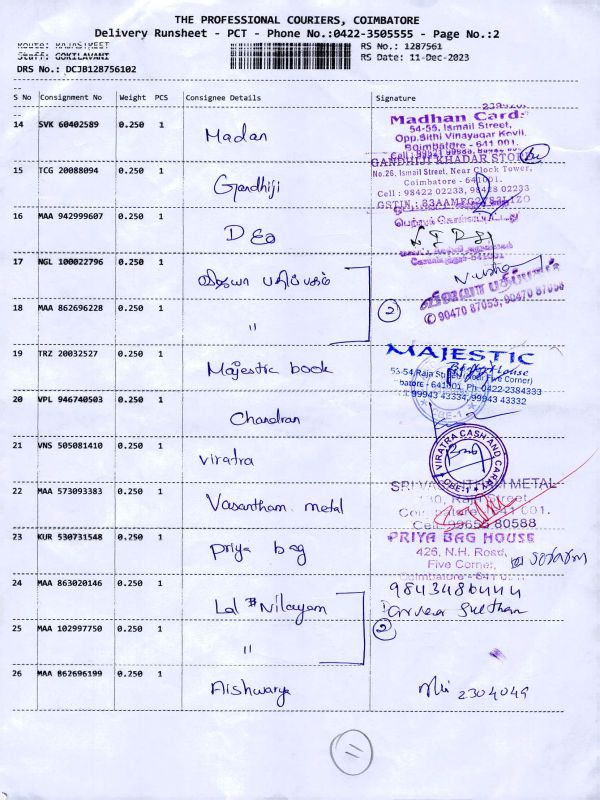 THE PROFESSIONAL COURIERS, COIMBATORE
Delivery Runsheet - PCT - Phone No.:0422-3505555 - Page No.:2
Route: RAJASTREET
Staff: GOKILAVANI
RS No.: 1287561
RS Date: 11-Dec-2023
DRS No.: DCJB128756102
S No Consignment No Weight PCS Consignee Details Signature
14 SVK 60402589 0.250 1 Madan
Madhan Cards
54-55, Ismail Street,
Opp.Sithi Vinayagar Kovil,
Coimbatore - 641 001.
15 TCG 20088094 0.250 1 Gandhiji
GANDHIJI KHADAR STORE
No.26, Ismail Street, Near Clock Tower,
Coimbatore - 641001.
Cell : 98422 02233, 98428 02233
16 MAA 942999607 0.250 1 DEO
17 NGL 100022796 0.250 1 விஜயா பதிப்பகம்
விஜயா பதிப்பகம்
✆ 90470 87053, 90470 87058
18 MAA 862696228 0.250 1 "
2
19 TRZ 20032527 0.250 1 Majestic book
MAJESTIC
Book House
53-54,Raja Street, (Near Five Corner)
Coimbatore - 641001. Ph 0422-2384333
Cell: 99943 43334, 99943 43332
20 VPL 946740503 0.250 1 Chandran
CBE-1
21 VNS 505081410 0.250 1 viratra
VIRATRA CASH AND CARRY
CBE-1
22 MAA 573093383 0.250 1 Vasantham. metal
SRI VASANTHAM METAL
130, Raja Street,
Coimbatore - 641 001.
Cell: 99655 80588
23 KUR 530731548 0.250 1 priya bag
PRIYA BAG HOUSE
426, N.H. Road,
Five Corner,
Coimbatore - 641 001
24 MAA 863020146 0.250 1 Lal Nilayam
9843486444
Sulthan
25 MAA 102997750 0.250 1 "
2
26 MAA 862696199 0.250 1 Aishwarya
2304049